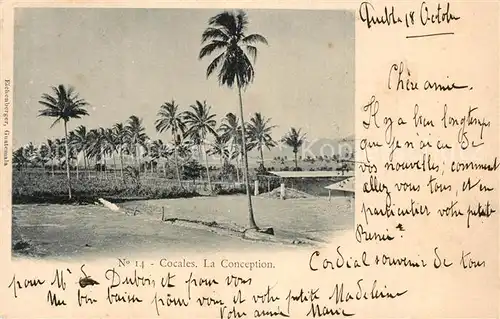 Puebla 18 Octobre
Chère amie.
Il y a bien longtemps
que je n'ai eu de
vos nouvelles; comment
allez vous tous, et en
particulier votre petite
Cordial souvenir de tous
Eichenberger, Guatemala
No 14 - Cocales. La Conception.
pour Mr Dubois et pour vous
Un bon baiser pour vous et votre petite Madeleine
Votre amie Marie